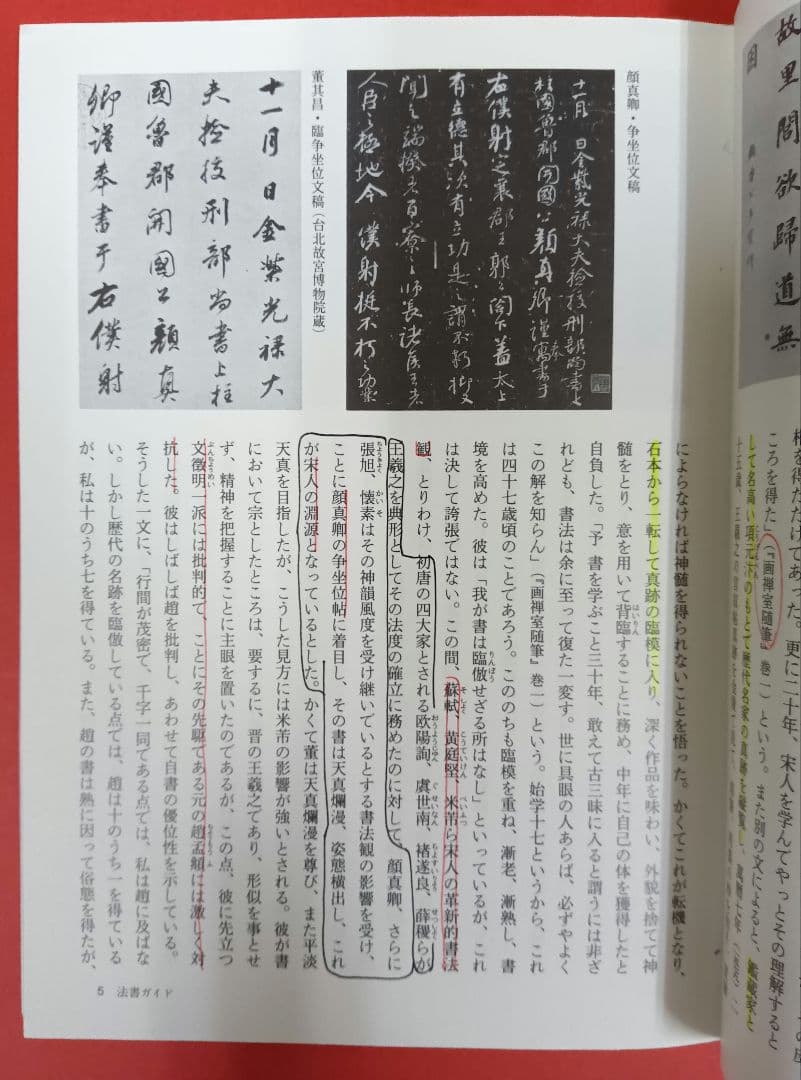 故里閭欲歸道無
柑を得ただけであった。更に二十年、宋人を学んでやっとその理解すると
ころを得た」(『画禅室随筆』巻一)という。また別の文によると、鑑蔵家と
して名高い項元汴のもとで歴代名家の真跡を
顔真卿・争坐位文稿
十一月 日金紫光禄大夫捡挍刑部尚書上
柱國魯郡開國公顔真卿謹寓書于
右僕射定襄郡王郭公閤下蓋太上
有立德其次有立功是之謂不朽抑又
聞之端揆者百寮之師長諸侯王者
人臣之極地今僕射挺不朽之功業
董其昌・臨争坐位文稿(台北故宮博物院蔵)
十一月日金紫光禄大
夫捡挍刑部尚書上柱
國魯郡開國公顔真
卿謹奉書于右僕射
によらなければ神髄を得られないことを悟った。かくてこれが転機となり、
石本から一転して真跡の臨模に入り、深く作品を味わい、外貌を捨てて神
髄をとり、意を用いて背臨することに務め、中年に自己の体を獲得したと
自負した。「予 書を学ぶこと三十年、敢えて古三昧に入ると謂うには非ざ
れども、書法は余に至って復た一変す。世に具眼の人あらば、必ずやよく
この解を知らん」(『画禅室随筆』巻一)という。始学十七というから、これ
は四十七歳頃のことであろう。こののちも臨模を重ね、漸老、漸熟し、書
境を高めた。彼は「我が書は臨倣せざる所はなし」といっているが、これ
は決して誇張ではない。この間、蘇軾、黄庭堅、米芾ら宋人の革新的書法
観、とりわけ、初唐の四大家とされる欧陽詢、虞世南、褚遂良、薛稷らが
王羲之を典形としてその法度の確立に務めたのに対して、顔真卿、さらに
張旭、懐素はその神韻風度を受け継いでいるとする書法観の影響を受け、
ことに顔真卿の争坐位帖に着目し、その書は天真爛漫、姿態横出し、これ
が宋人の淵源となっているとした。かくて董は天真爛漫を尊び、また平淡
天真を目指したが、こうした見方には米芾の影響が強いとされる。彼が書
において宗としたところは、要するに、晋の王羲之であり、形似を事とせ
ず、精神を把握することに主眼を置いたのであるが、この点、彼に先立つ
文徴明一派には批判的で、ことにその先駆である元の趙孟頫には激しく対
抗した。彼はしばしば趙を批判し、あわせて自書の優位性を示している。
そうした一文に、「行間が茂密で、千字一同である点では、私は趙に及ばな
い。しかし歴代の名跡を臨倣している点では、趙は十のうち一を得ている
が、私は十のうち七を得ている。また、趙の書は熟に因って俗態を得たが、
5 法書ガイド